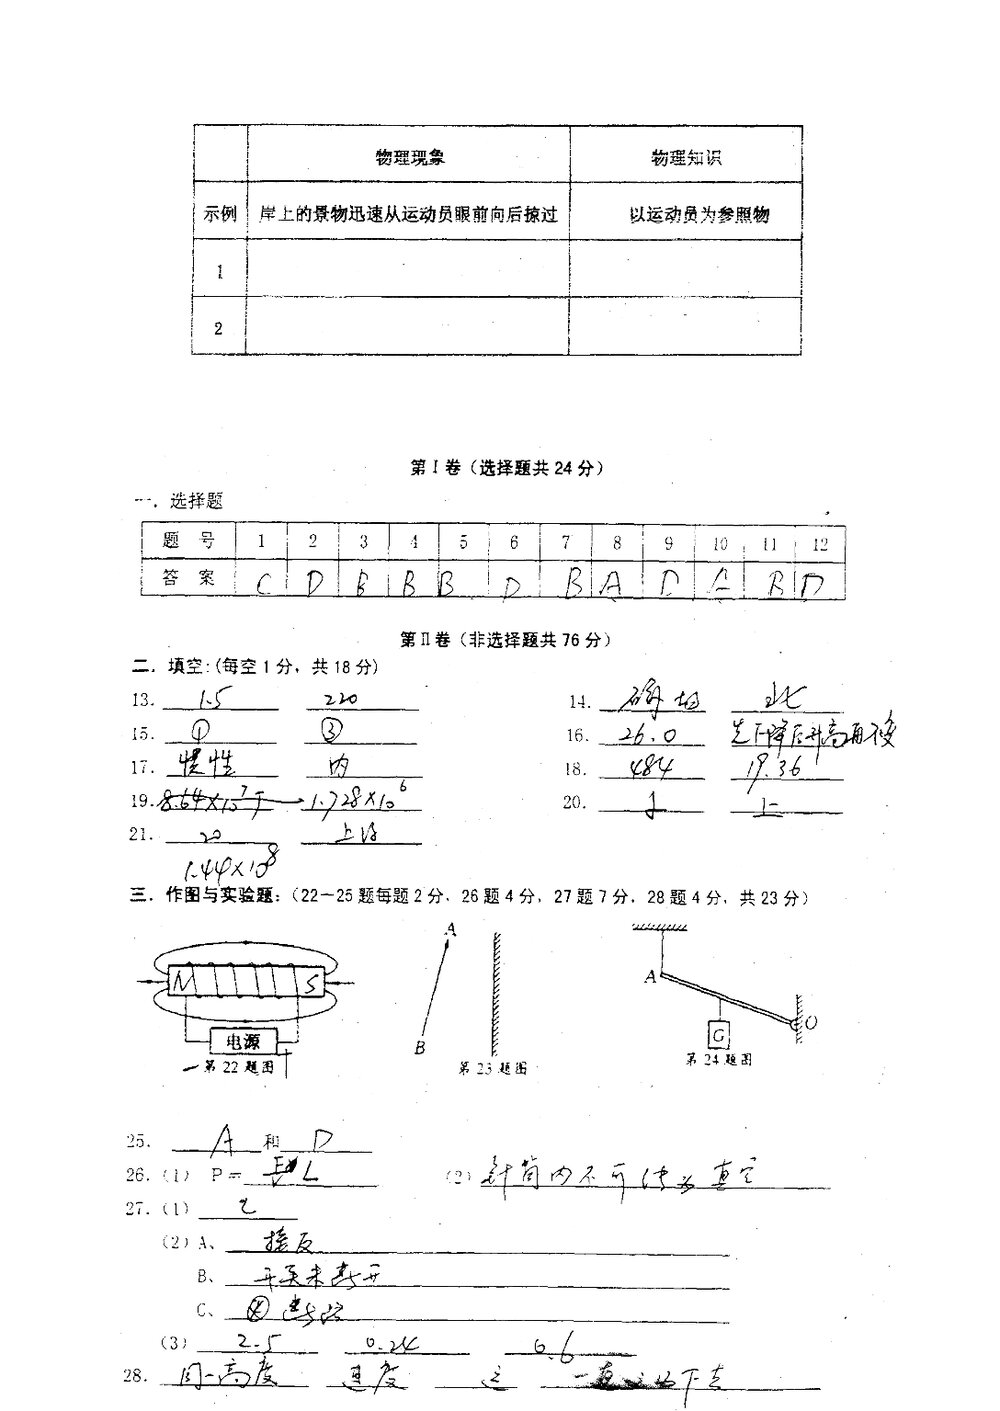 物理现象 物理知识
示例 岸上的景物迅速从运动员眼前向后掠过 以运动员为参照物
1
2
第Ⅰ卷（选择题共24分）
一．选择题
题 号 1 2 3 4 5 6 7 8 9 10 11 12
答 案 C D B B B D B A D A B D
第Ⅱ卷（非选择题共76分）
二．填空:(每空1分，共18分)
13. 1.5 220 14. 北
15. ① ③ 16. 26.0 先下降后升高再不变
17. 惯性 内 18. 484 19.36
19. 8.64×10⁷J 1.728×10⁶ 20. 上
21. 20
1.44×10⁸
三．作图与实验题:（22－25题每题2分，26题4分，27题7分，28题4分，共23分）
N S
电源
第22题图
A
B
第23题图
A
O
G
第24题图
25. A 和 D
26.（1） P＝ L （2）针筒内不可 为真空
27.（1）
（2）A、 接反
B、 开关未断开
C、 断路
（3） 2.5 0.24 0.6
28. 同一高度 速度 下